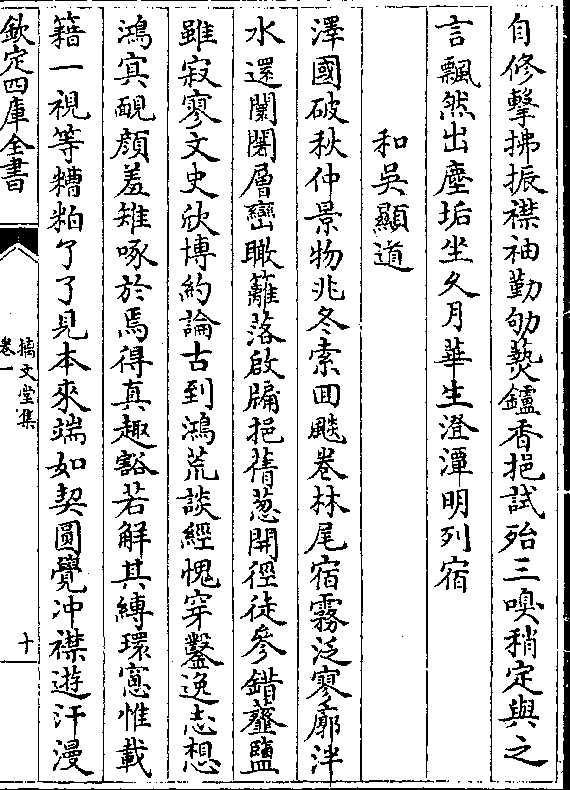 自修擊拂振襟袖勤劬爇鑪香挹試殆三嗅稍定與之
言飄然出塵垢坐久月華生澄潭明列宿
和吳顯道
澤國破秋仲景物兆冬索回飈卷林尾宿霧泛寥廓泮
水還闤闍層巒瞰籬落啟牖挹蒨葱開徑徒參錯虀鹽
雖寂寥文史欣博約論古到鴻荒談經愧穿鑿逸志想
鴻寘靦顔羞雉啄於焉得真趣豁若解其縛環窻惟載
籍一視等糟粕了了見本來端如契圓覺冲襟遊汗漫
欽定四庫全書
德文堂集
卷一
十